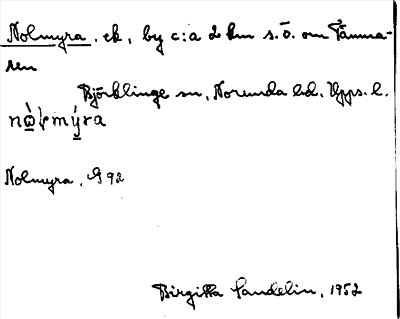 Nolmyra, ek, by c:a 2 km s.ö. om Tämna-
ren
Björklinge sn, Norunda hd, Upps. l.
Nolmyra, G 92
Birgitta Sandelin, 1952